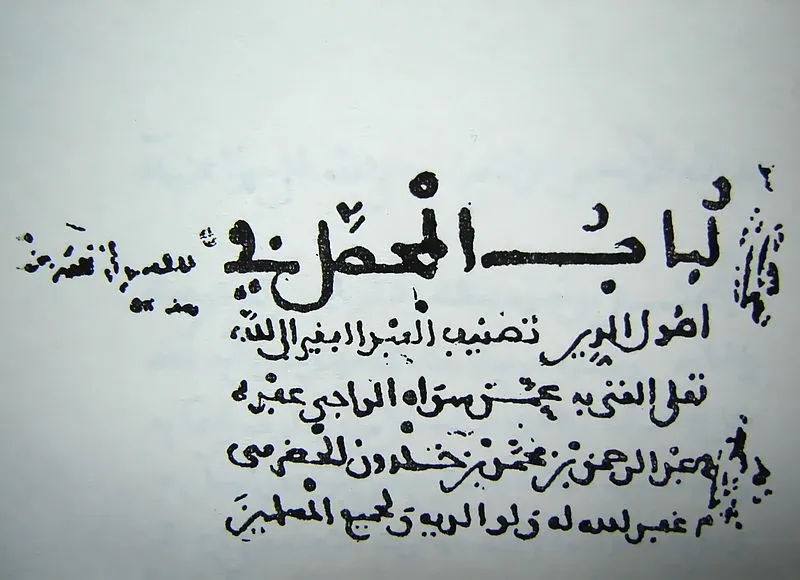 لُبابُ المْحصِّل في
اصُول الدِين تصنيف العبد الفقير الى اللَّه
تعلى الغني به عمّن سواه الراجي عفوه
عبد الرحمن بْن محمّد بْن خلدون الحضرمي
غفر الله له وَلوالديه وَلجميع المسلمينَ